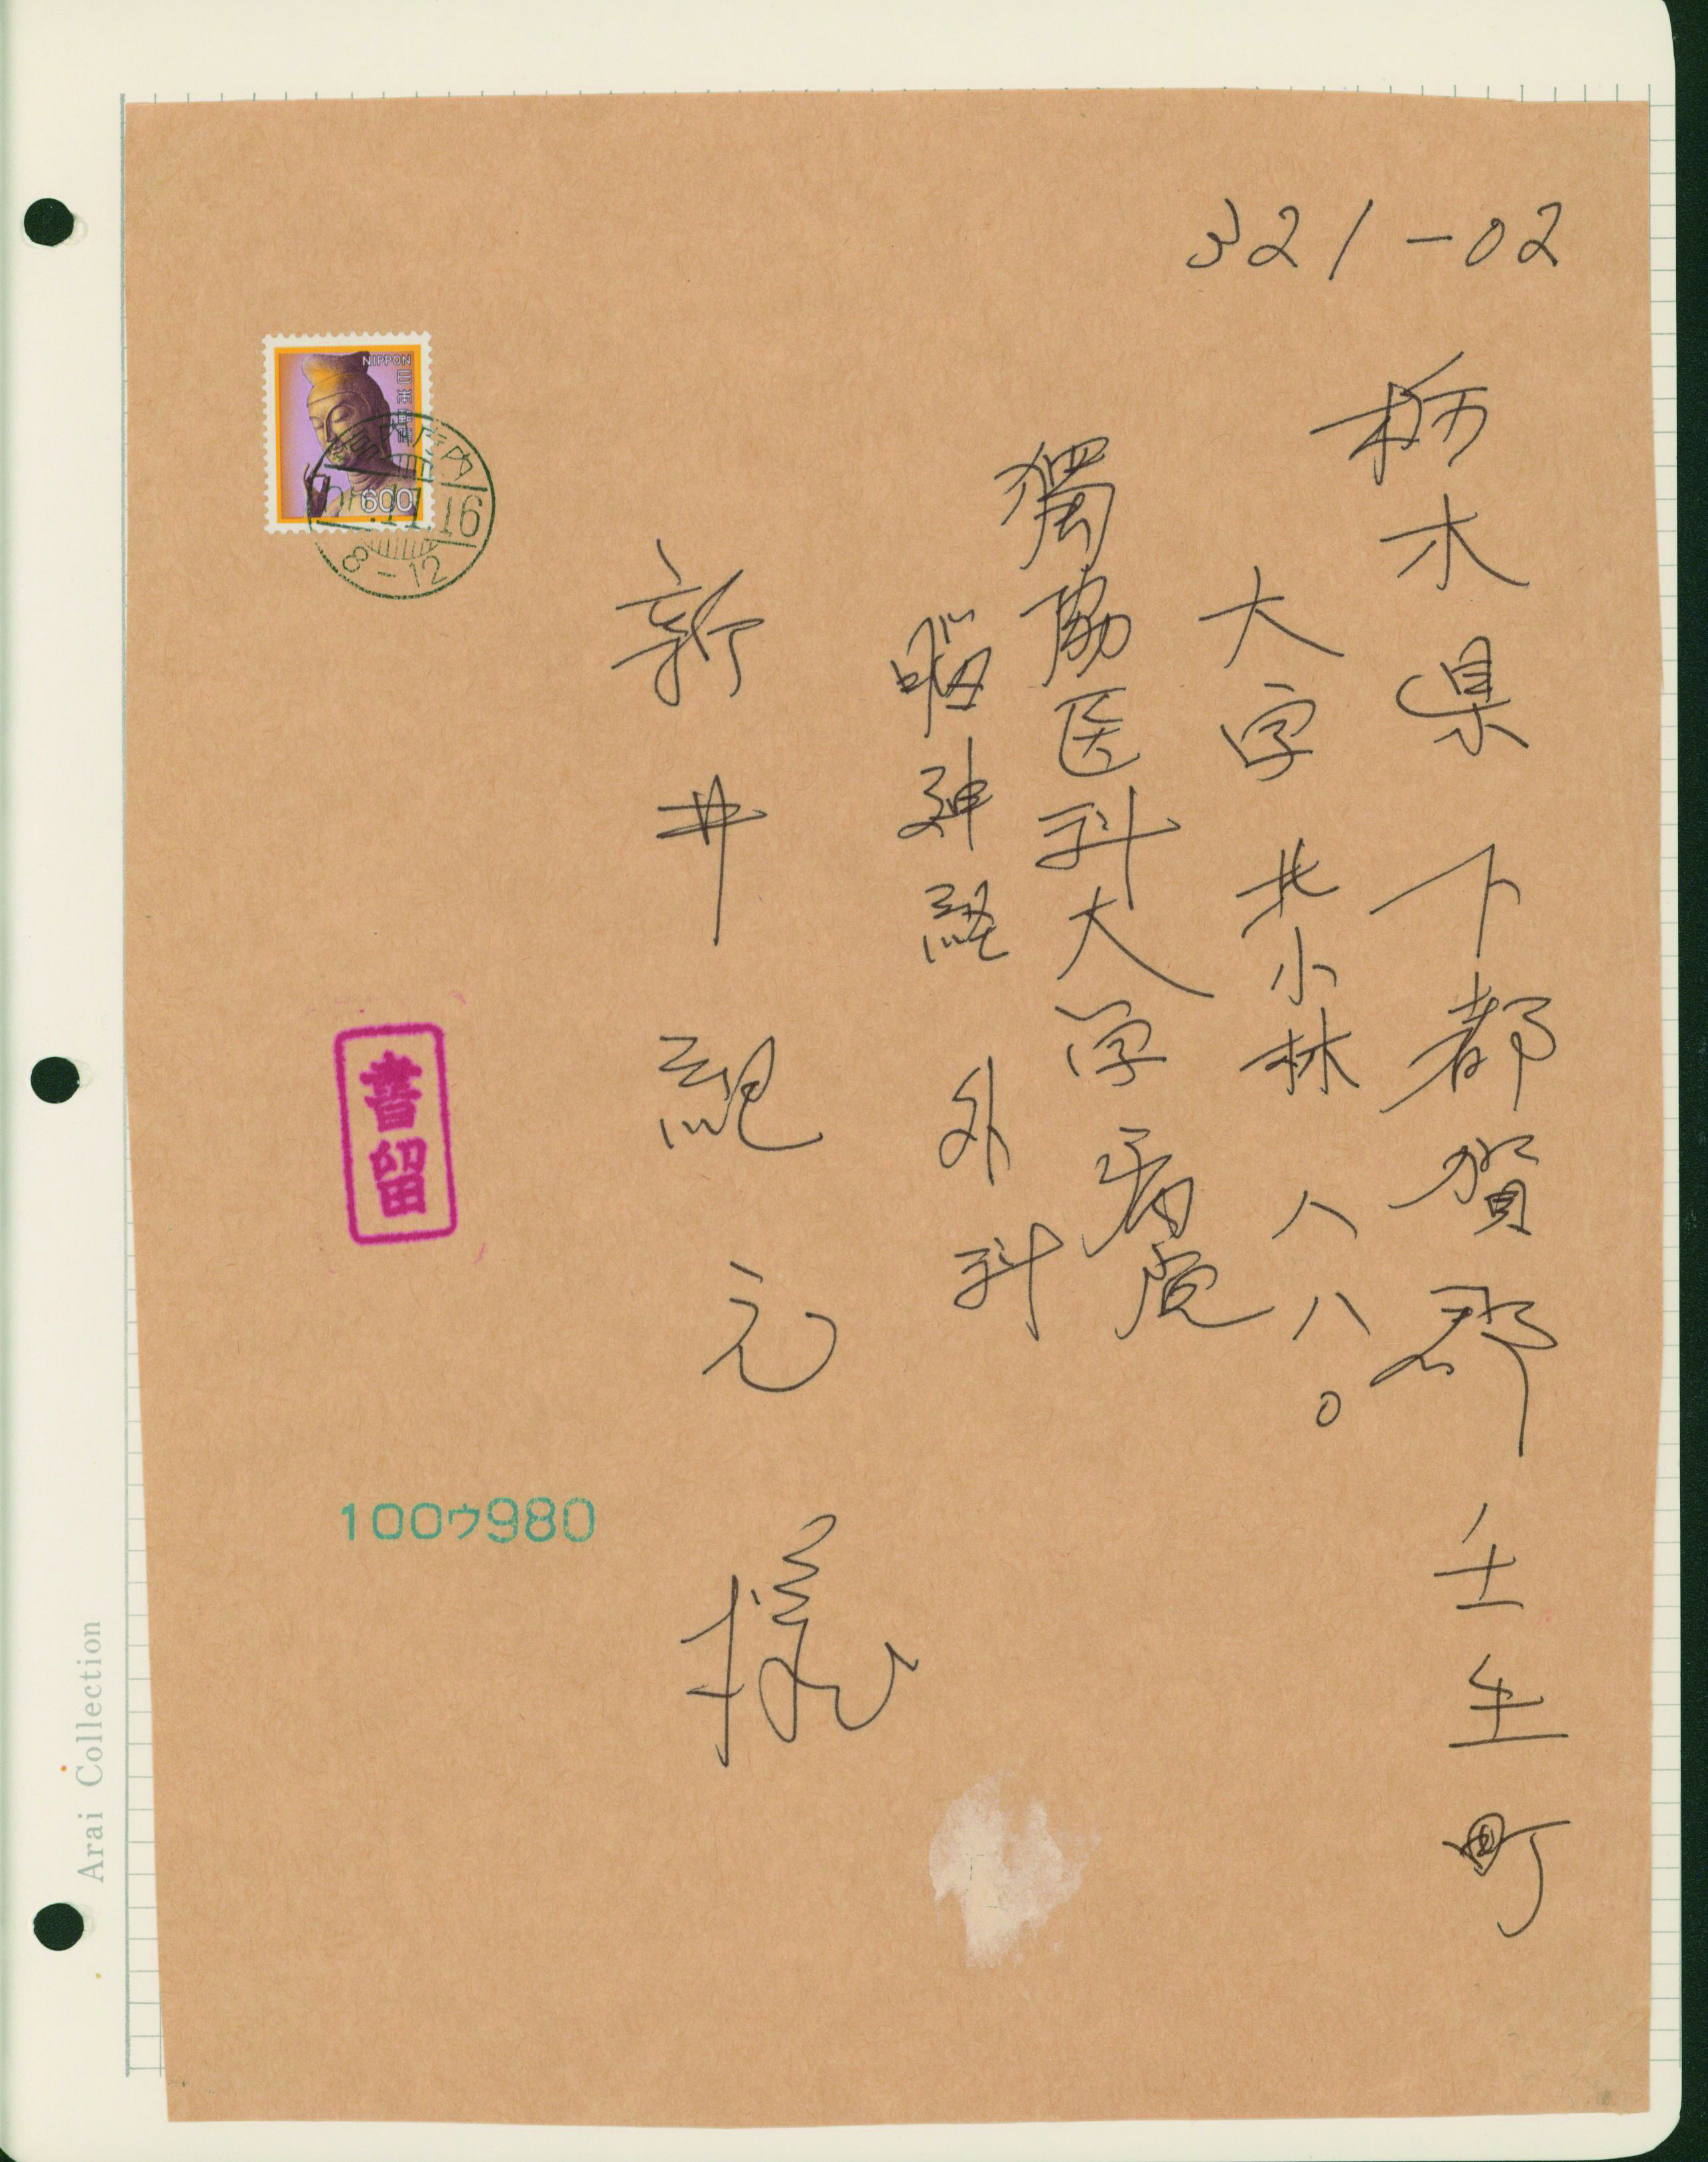 321-02
栃木県 下都賀郡 壬生町
大字 北小林 八八〇
獨協医科大学病院
脳神経 外科
新井紀元様
NIPPON
日本郵便
600
11.16
8-12
書留
100ウ980
Arai Collection